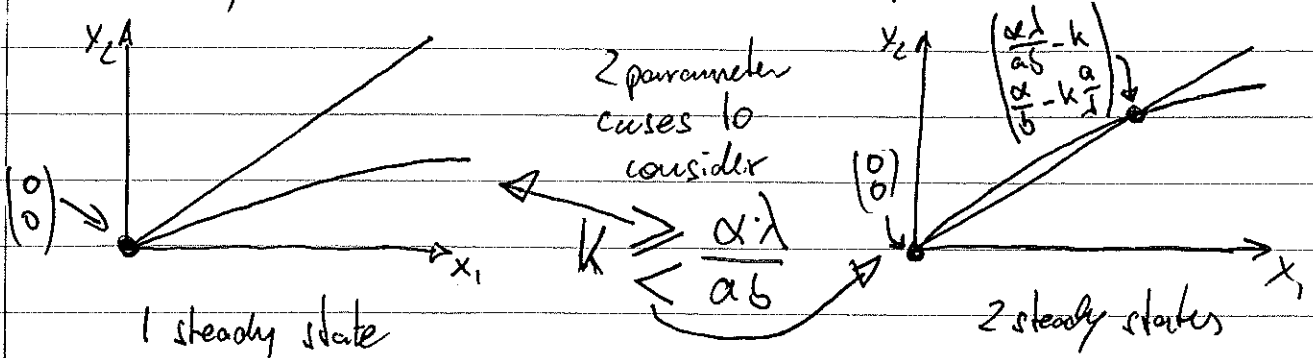 x₂
(0 0)
x₁
1 steady state
2 parameter
cases to
consider
K ≥ < α·λ / ab
x₂
(αλ/ab - k
α/b - k a/λ)
(0 0)
x₁
2 steady states